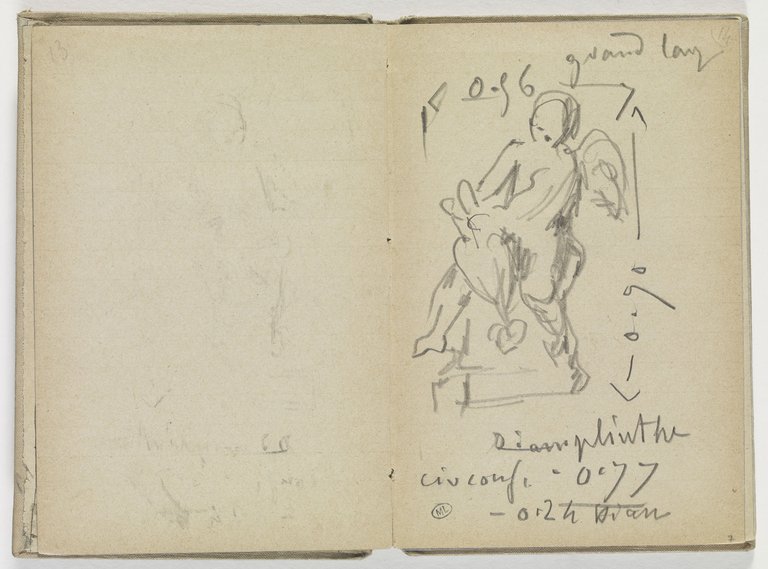 13
grand larg
0.56
0.90
Diam plinthe
circonf. - 0.77
- 0.24 Diam
ML
7